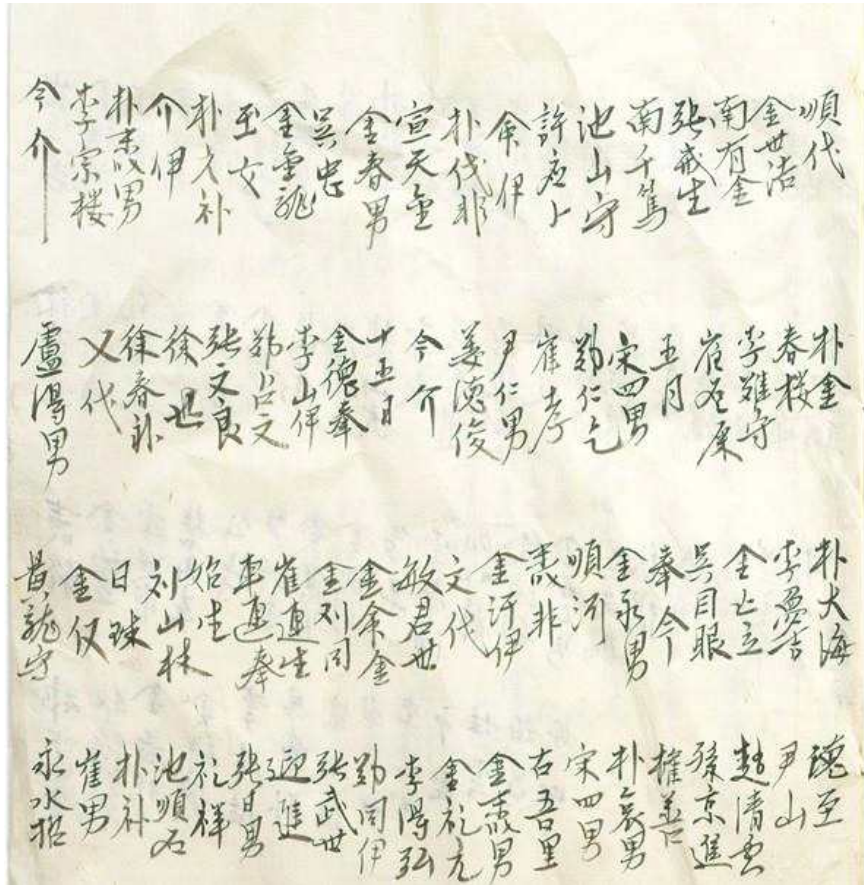 順代
金世浩
南有金
張戒生
南千萬
池山守
許應上
余伊
朴伐非
宣天金
金春男
吳忠
金金龍
玉女
朴文補
介伊
朴末男
李宗樓
今介
朴金
春樓
李難守
崔石
五月
宋四男
鄭仁
崔孝
尹仁男
姜德俊
今介
十五日
金德奉
李山伊
鄭占文
張文良
徐
徐春補
义代
盧得男
朴大海
李
金亡立
吳目眼
奉今
金永男
順河
非
金許伊
文代
敏君世
金余金
金刘同
崔連生
車連奉
始生
刘山林
日珠
金仅
黃龍守
尹山
趙清雲
孫京進
權
朴哀男
宋四男
右吾里
金男
金礼元
李得弘
鄭同伊
張武世
迎進
張日男
礼祥
池順石
朴補
崔男
永水招